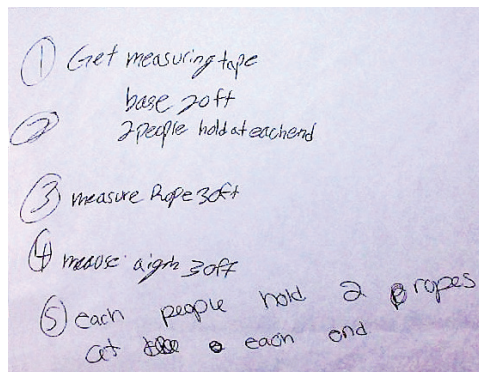 ① Get measuring tape
base 20ft
② 2 people hold at each end
③ measure Rope 30ft
④ 30ft
⑤ each people hold 2 ropes
at each end